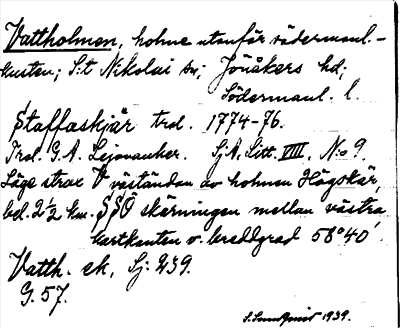 Vattholmen, holme utanför södermanl.-
kusten; S:t Nikolai sn; Jönåkers hd;
Södermanl. l.
Staffaskjär trol. 1774-76.
Trol. G. A. Lejonanker. Sj.A. litt. VIII, N:o 9.
Läge strax V väständan av holmen Högskär,
bel. 2½ km. SSO skärningen mellan västra
kartkanten o. breddgrad 58°40'.
Vatth. ek, Sj: 239.
G. 57.
S. Sundqvist 1939.